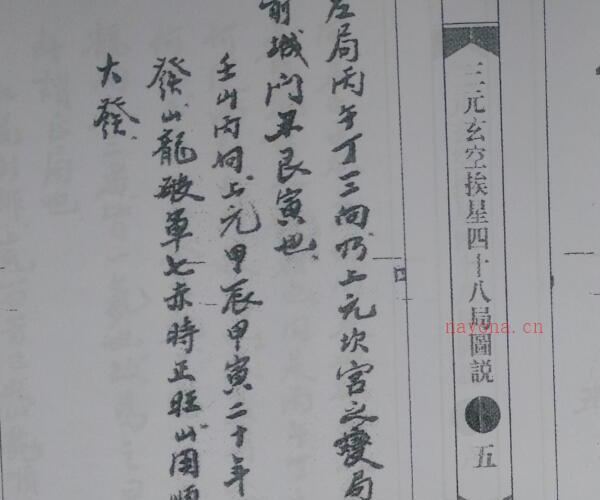 三元玄空挨星四十八局圖説 五
左局丙午丁三向乃上元坎宮之變局
前城門丑艮寅也
壬山丙向上元甲辰甲寅二十年
發山龍破軍七赤時正旺山固順
大發
nayona.cn